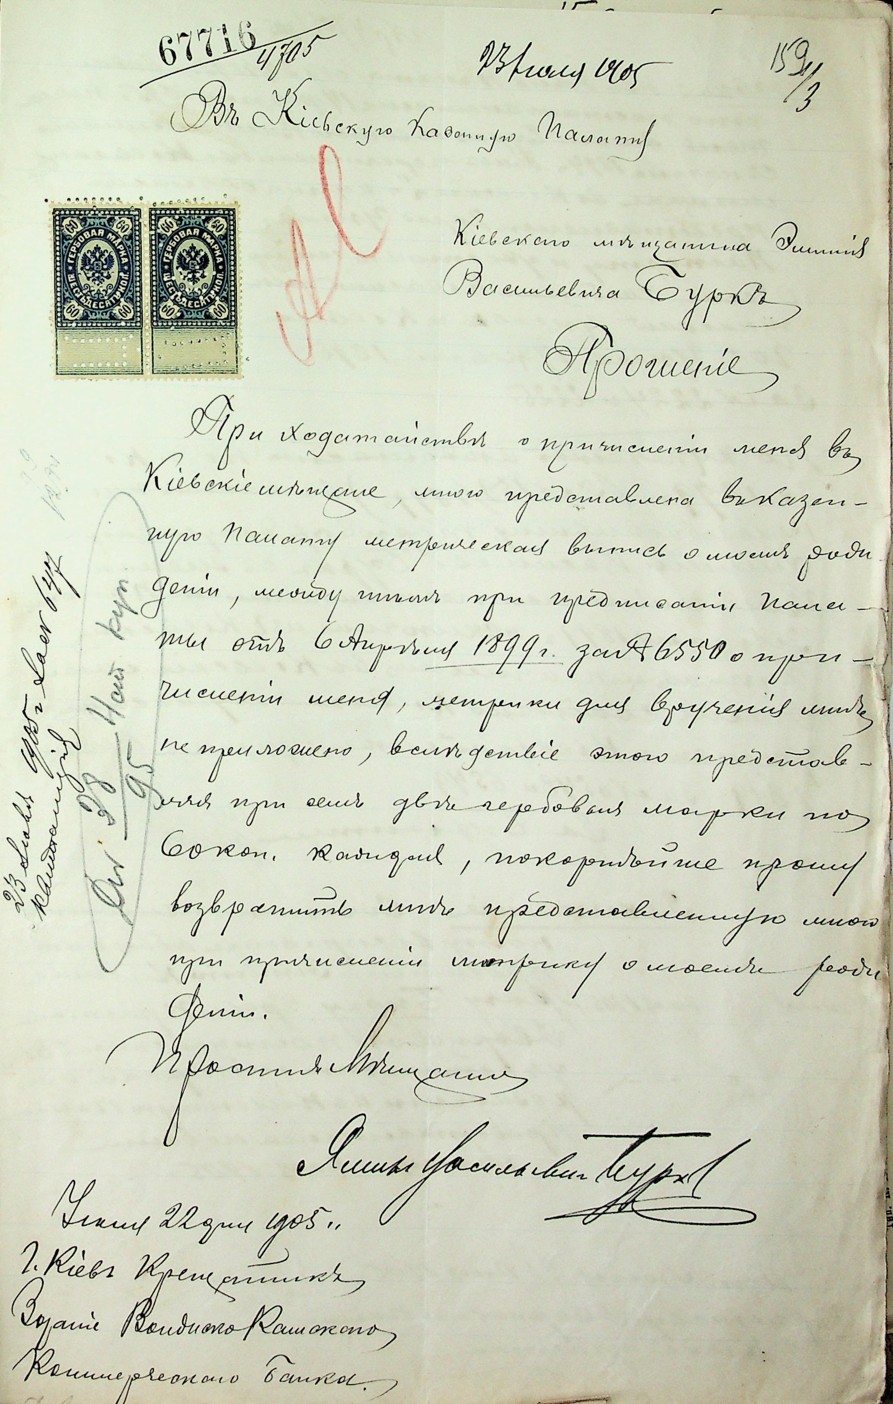 67716
4705
23 Іюля 1905
159/3
Въ Кіевскую Казенную Палату
ГЕРБОВАЯ МАРКА
60
ГЕРБОВАЯ МАРКА
60
Кіевскаго мѣщанина Эмилія
Васильевича Буркъ
Прошеніе
При ходатайствѣ о причисленіи меня въ
Кіевскіе мѣщане, мною представлена въ казен-
ную Палату метрическая выпись о моемъ рож-
деніи, между тѣмъ при предписаніи Пала-
ты отъ 6 Апрѣля 1899 г. за № 6550 о при-
численіи меня, метрики для врученія мнѣ
не приложено, вслѣдствіе этого представ-
ляя при семъ двѣ гербовыя марки по
60 коп. каждая, покорнѣйше прошу
возвратить мнѣ представленную мною
при причисленіи метрику о моемъ рож-
деніи.
Кіевскій Мѣщанинъ
Васильевич Буркъ
Іюля 22 дня 1905 г.
г. Кіевъ Крещатикъ
Зданіе Волжско Камскаго
Коммерческаго Банка.
23 Іюля 1905 г.
28
95